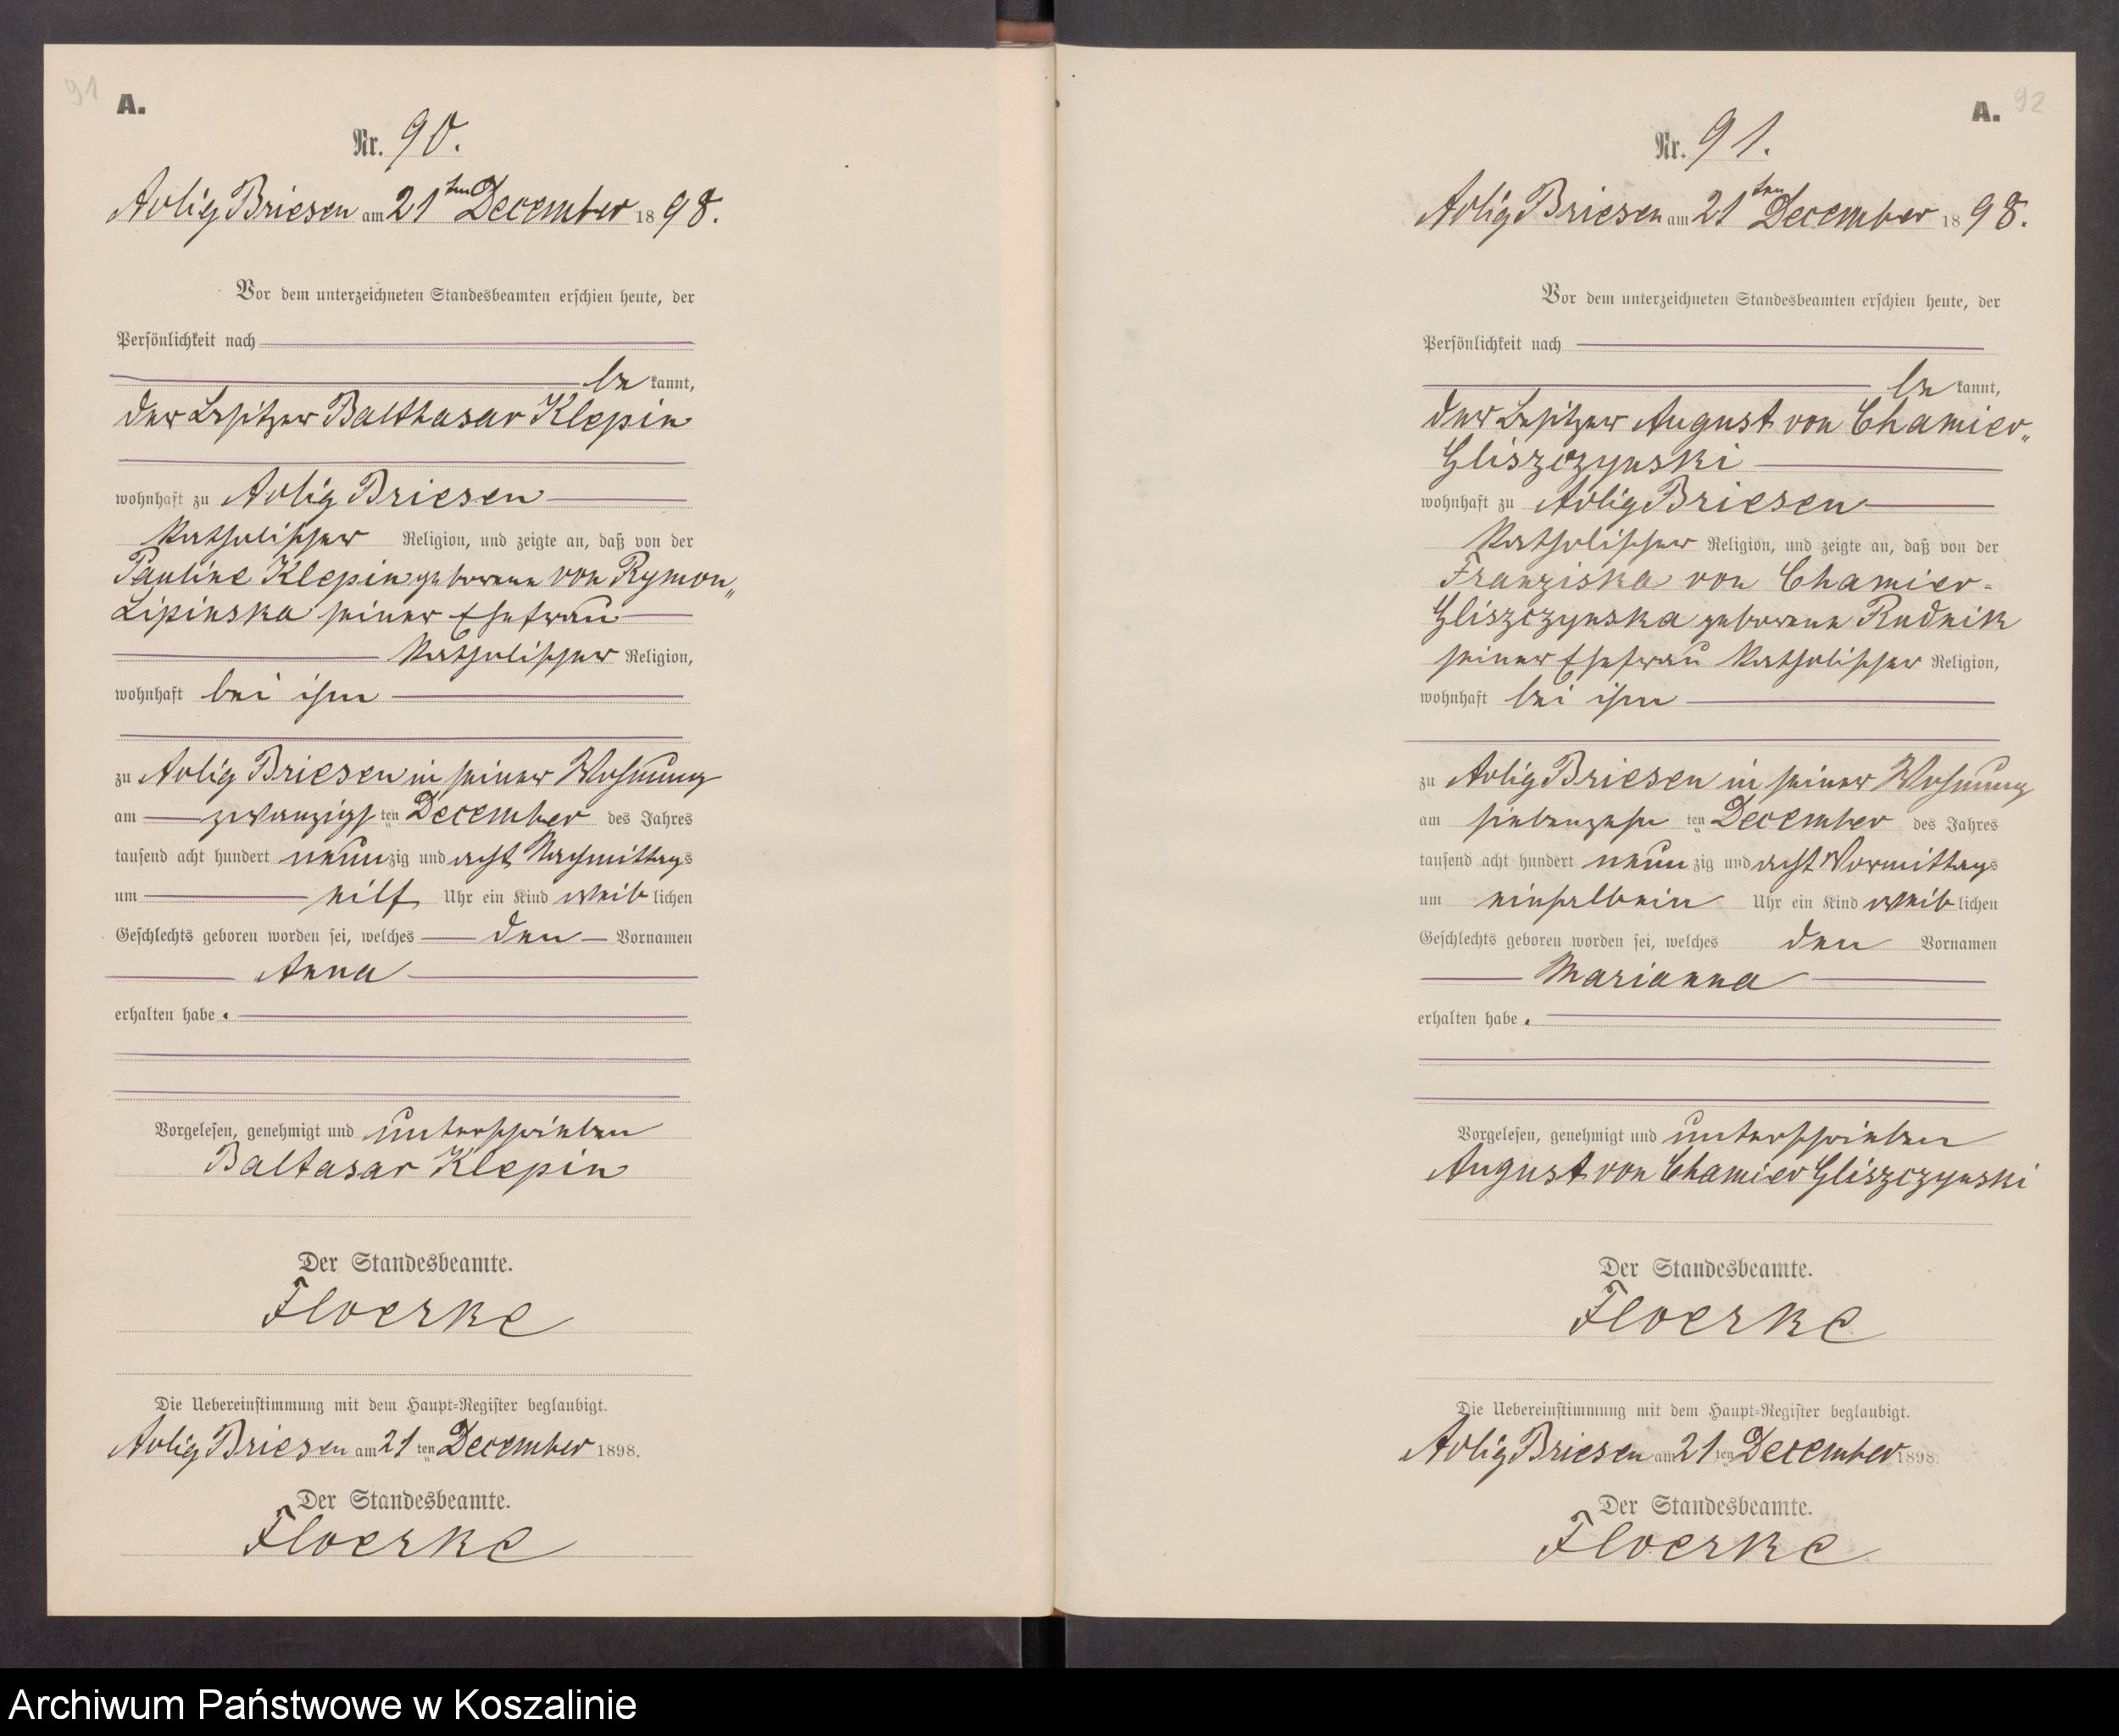 91
A.
Nr. 90.
Adlig Briesen am 21ten December 1898.
Vor dem unterzeichneten Standesbeamten erschien heute, der
Persönlichkeit nach
bekannt,
der Besitzer Balthasar Klepin
wohnhaft zu Adlig Briesen
katholischer Religion, und zeigte an, daß von der
Pauline Klepin geborene von Rymon„
Lipinska seiner Ehefrau
katholischer Religion,
wohnhaft bei ihm
zu Adlig Briesen in seiner Wohnung
am zwanzigsten December des Jahres
tausend acht hundert neunzig und acht Nachmittags
um eilf Uhr ein Kind weiblichen
Geschlechts geboren worden sei, welches den Vornamen
Anna
erhalten habe.
Vorgelesen, genehmigt und unterschrieben
Baltasar Klepin
Der Standesbeamte.
Floerke
Die Uebereinstimmung mit dem Haupt-Register beglaubigt.
Adlig Briesen am 21ten December 1898.
Der Standesbeamte.
Floerke
A. 92
Nr. 91.
Adlig Briesen am 21ten December 1898.
Vor dem unterzeichneten Standesbeamten erschien heute, der
Persönlichkeit nach
bekannt,
der Besitzer August von Chamier„
Gliszczynski
wohnhaft zu Adlig Briesen
katholischer Religion, und zeigte an, daß von der
Franziska von Chamier-
Gliszczynska geborene Rudnik
seiner Ehefrau katholischer Religion,
wohnhaft bei ihm
zu Adlig Briesen in seiner Wohnung
am siebenzehnten December des Jahres
tausend acht hundert neunzig und acht Vormittags
um einhalbein Uhr ein Kind weiblichen
Geschlechts geboren worden sei, welches den Vornamen
Marianna
erhalten habe.
Vorgelesen, genehmigt und unterschrieben
August von Chamier Gliszczynski
Der Standesbeamte.
Floerke
Die Uebereinstimmung mit dem Haupt-Register beglaubigt.
Adlig Briesen am 21ten December 1898.
Der Standesbeamte.
Floerke
Archiwum Państwowe w Koszalinie